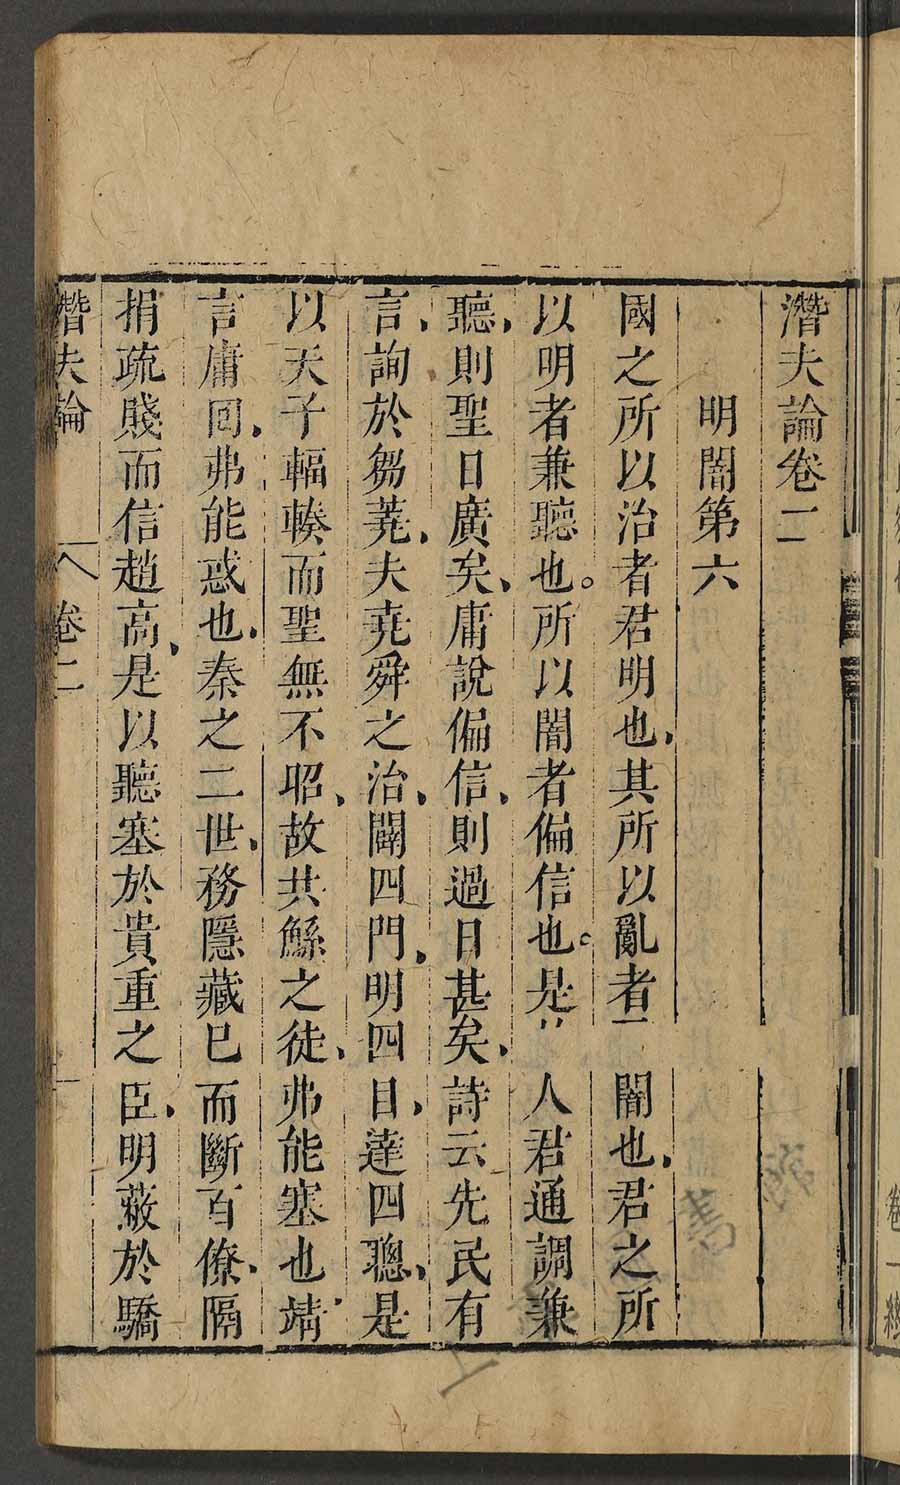 潛夫論卷二
明闇第六
國之所以治者君明也其所以亂者闇也君之所
以明者兼聽也。所以闇者偏信也。是人君通調兼
聽則聖日廣矣、庸說偏信、則過日甚矣、詩云先民有
言、詢於芻蕘、夫堯舜之治、闢四門、明四目、達四聰、是
以天子輻輳而聖無不昭、故共鯀之徒、弗能塞也靖
言庸囘、弗能惑也、秦之二世、務隱藏已而斷百僚、隔
捐疏賤而信趙高、是以聽塞於貴重之臣、明蔽於驕
潛夫論 卷二
卷一終